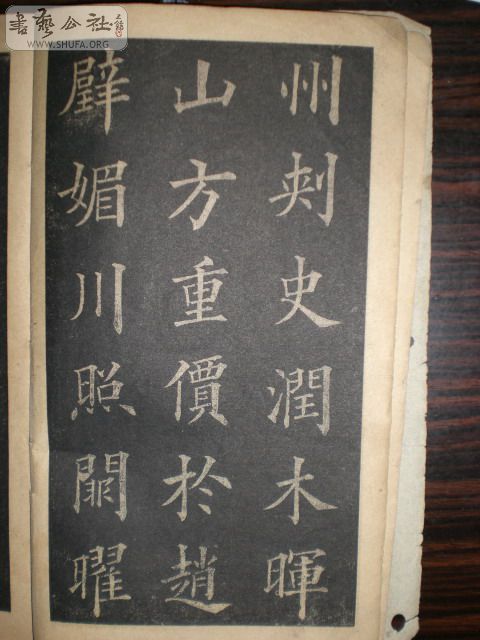 書藝公社
WWW.SHUFA.ORG
州刾史潤木暉
山方重價於趙
璧媚川照闕曜